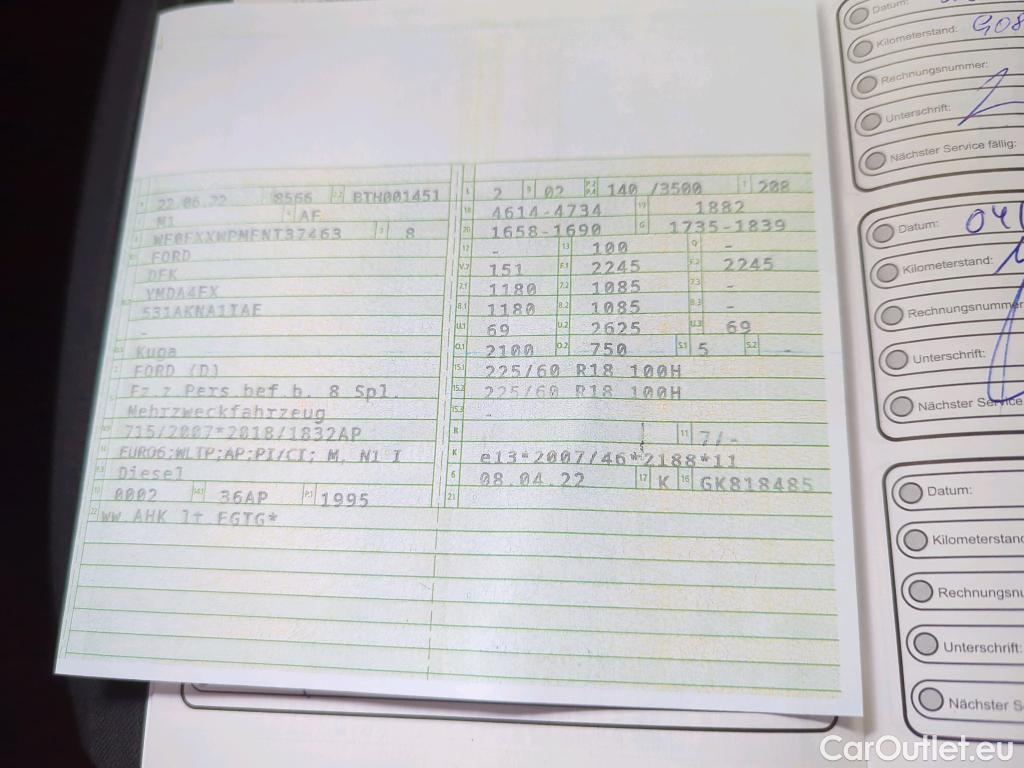 22.06.22 8566 2.2 BTH001451
M1 AF
WF0FXXWPMFNT37463 3 8
FORD
DFK
YMDA4FX
531AKNA1IAF
-
Kuga
FORD (D)
Fz.z.Pers.bef.b. 8 Spl.
Mehrzweckfahrzeug
715/2007*2018/1832AP
EURO6;WLTP;AP;PI/CI; M, N1 I
Diesel
10 0002 14.1 36AP P.1 1995
22 ww.AHK lt.EGTG*
L 2 9 02 P.2 P.4 140 /3500 T 208
18 4614-4734 19 1882
20 1658-1690 G 1735-1839
12 - 13 100 Q -
V.7 151 F.1 2245 F.2 2245
7.1 1180 7.2 1085 7.3 -
8.1 1180 8.2 1085 8.3 -
U.1 69 U.2 2625 U.3 69
O.1 2100 O.2 750 S.1 5 S.2 -
15.1 225/60 R18 100H
15.2 225/60 R18 100H
15.3 -
R 11 7/-
K e13*2007/46*2188*11
6 08.04.22 17 K 16 GK818485
21
Datum:
Kilometerstand: 908
Rechnungsnummer:
Unterschrift:
Nächster Service fällig:
Datum: 04
Kilometerstand:
Rechnungsnummer
Unterschrift:
Nächster Service
Datum:
Kilometerstand
Rechnungsnu
Unterschrift:
Nächster S
CarOutlet.eu